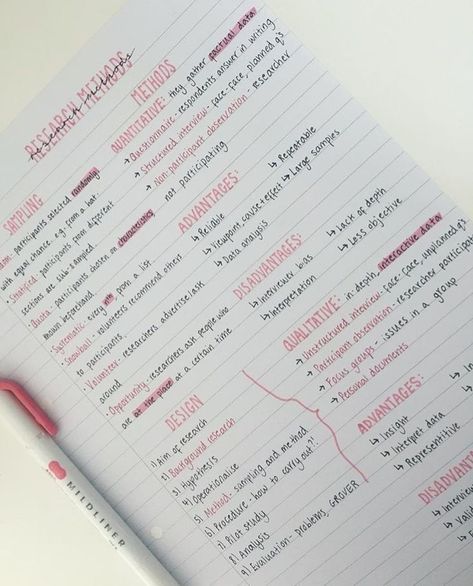 RESEARCH METHODS
research methods
SAMPLING
participants selected randomly
with equal chance. e.g. from a hat.
Stratified - participants from different
sections are sub-sampled.
Quota - participants chosen on characteristics,
known beforehand.
Systematic - every nth from a list
Snowball - volunteers recommend others
to participants
Volunteer - researchers advertise/ask
around
Opportunity - researchers ask people who
are at the place at a certain time
METHODS
QUANTITATIVE: they gather factual data
→ Questionnaire - respondents answer in writing
→ Structured interview - face-face, planned q's
→ Non-participant observation - researcher
not participating
ADVANTAGES:
↳ Reliable
↳ Viewpoint, cause + effect
↳ Data analysis
↳ Repeatable
↳ Large samples
DISADVANTAGES:
↳ Interviewer bias
↳ Interpretation
↳ Lack of depth
↳ Less objective
QUALITATIVE: in-depth, interactive data
→ Unstructured interview - face-face, unplanned q's
→ Participant observation - researcher
→ Focus groups - issues in a group
→ Personal documents
ADVANTAGES:
↳ Insight
↳ Interpret data
↳ Representitive
DESIGN
1) Aim of research
2) Background research
3) Hypothesis
4) Operationalise
5) Method - sampling and method
6) Procedure - how to carry out?!
7) Pilot study
8) Analysis
9) Evaluation - problems, GROVER
MILDLINER